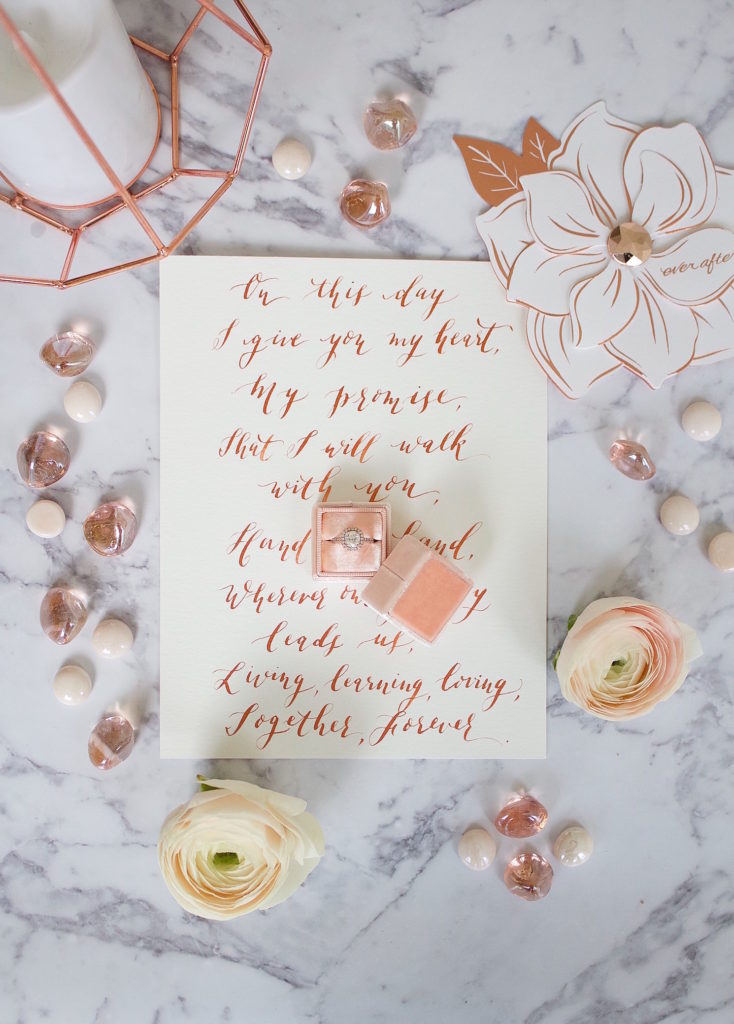 On this day
I give you my heart,
My promise,
That I will walk
with you,
Hand hand,
Wherever
leads us,
Living, learning, loving,
Together, Forever.
over afte